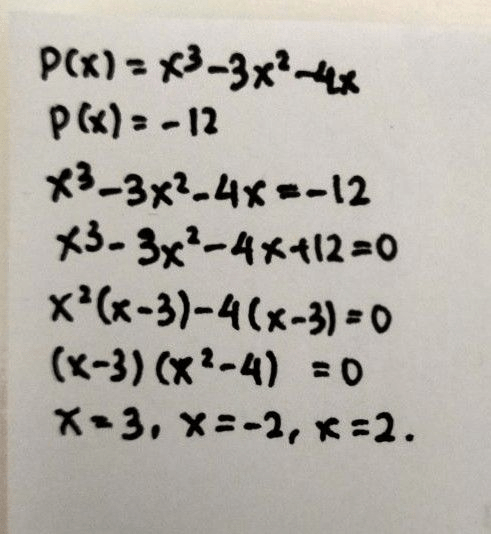 P(x) = x³-3x²-4x
P(x) = -12
x³-3x²-4x = -12
x³-3x²-4x+12=0
x²(x-3)-4(x-3)=0
(x-3)(x²-4) = 0
x=3, x=-2, x=2.